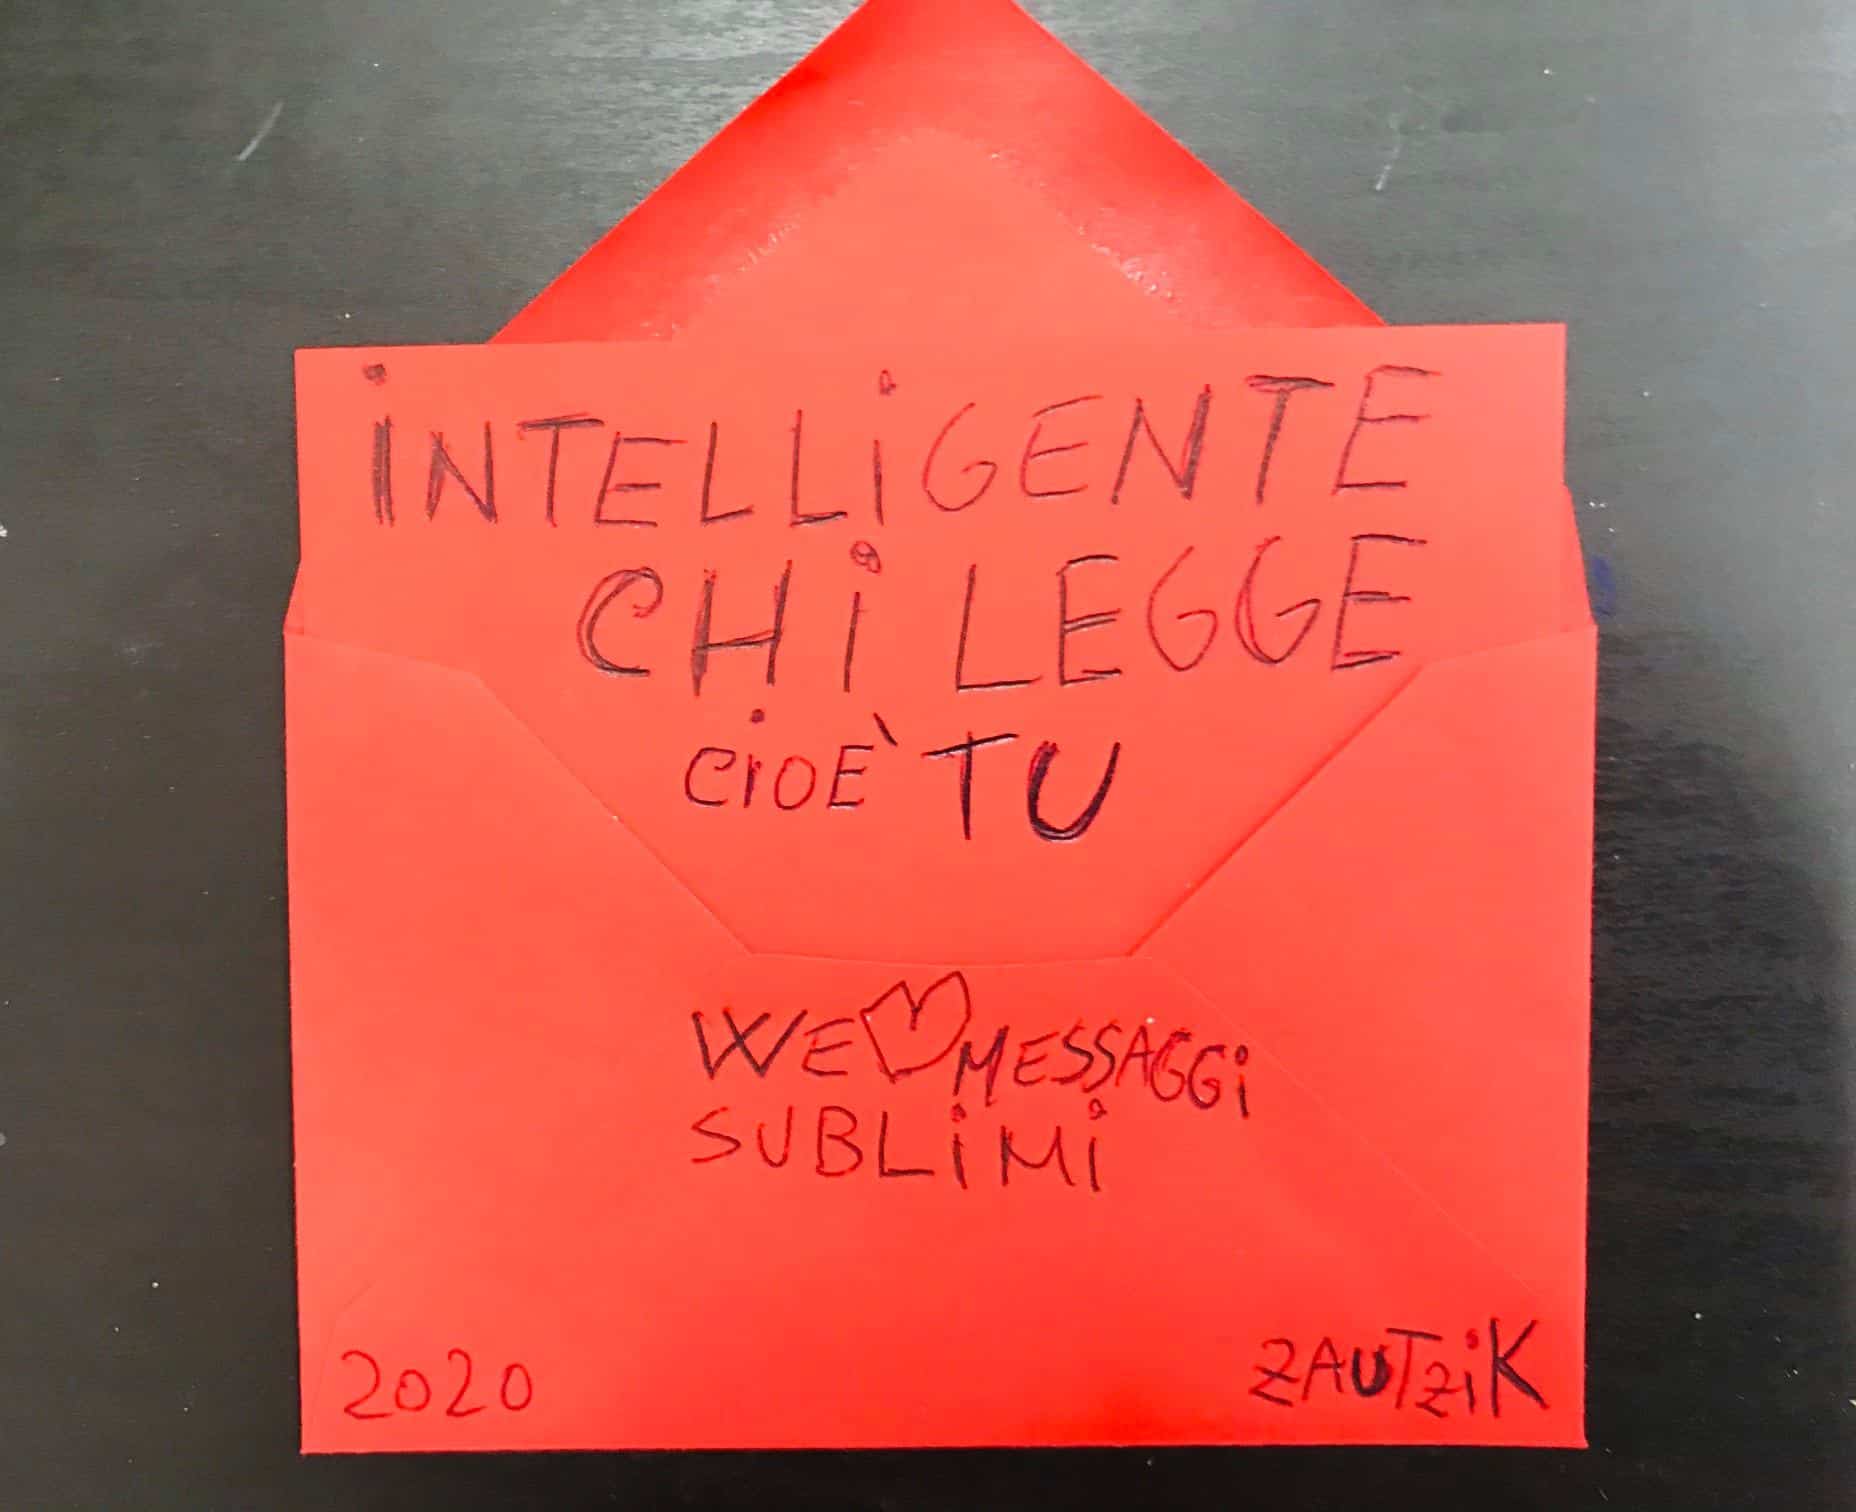 INTELLIGENTE
CHI LEGGE
CIOÈ TU
WE ♡ MESSAGGI
SUBLIMI
2020
ZAUTZIK